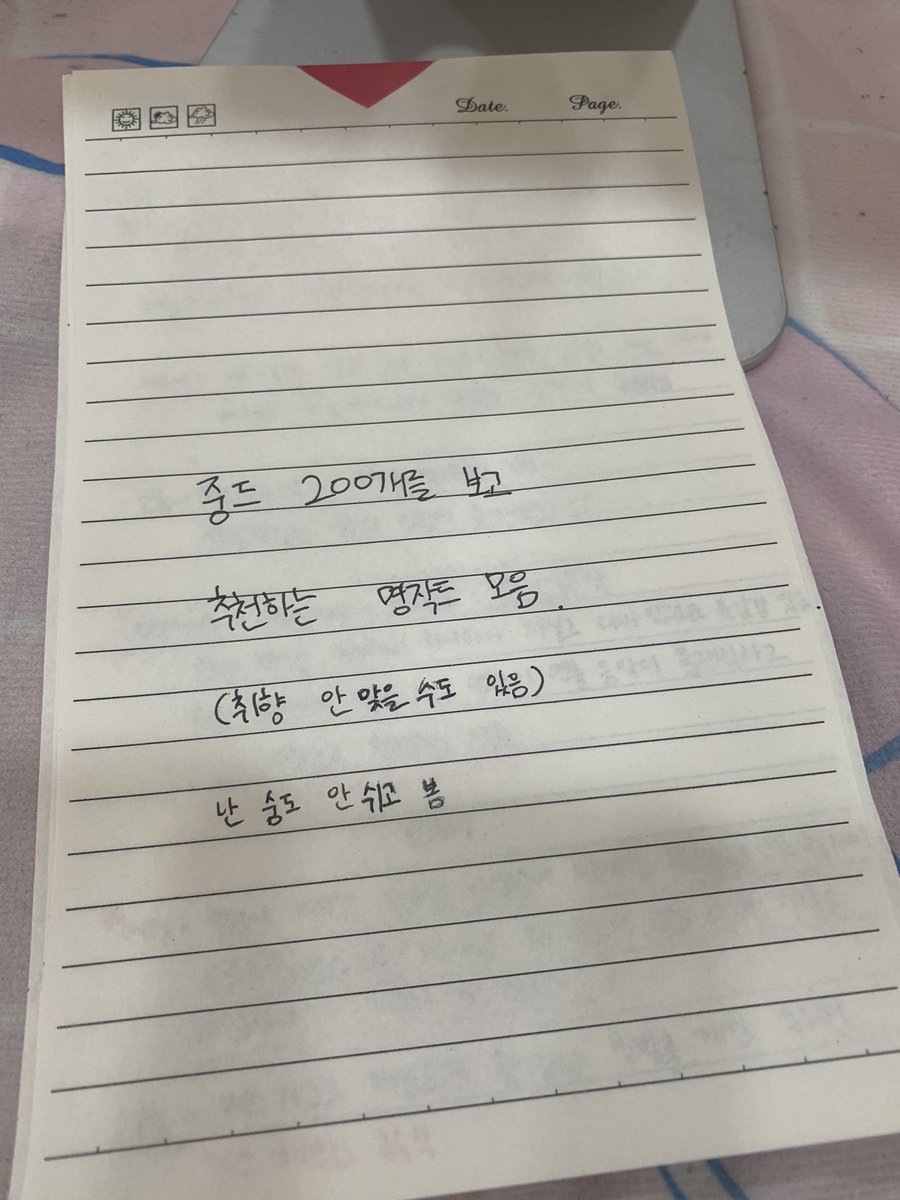 Date. Page.
중드 200개를 보고
추천하는 명작드 모음.
(취향 안 맞을 수도 있음)
난 숨도 안 쉬고 봄